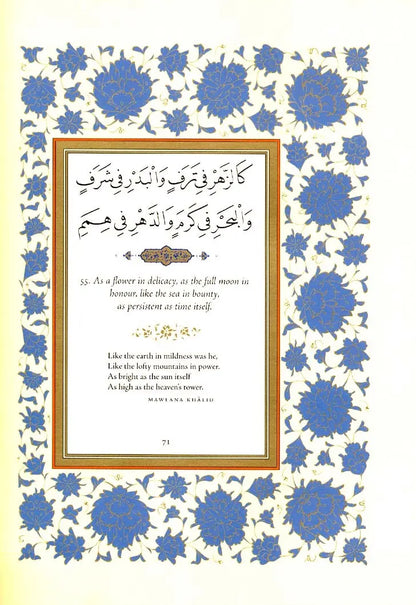 كَالزَّهْرِ فِي تَرَفٍ وَالْبَدْرِ فِي شَرَفٍ
وَالْبَحْرِ فِي كَرَمٍ وَالدَّهْرِ فِي هِمَمِ
55. As a flower in delicacy, as the full moon in
honour, like the sea in bounty,
as persistent as time itself.
Like the earth in mildness was he,
Like the lofty mountains in power.
As bright as the sun itself
As high as the heaven's tower.
MAWLANA KHÂLID
71